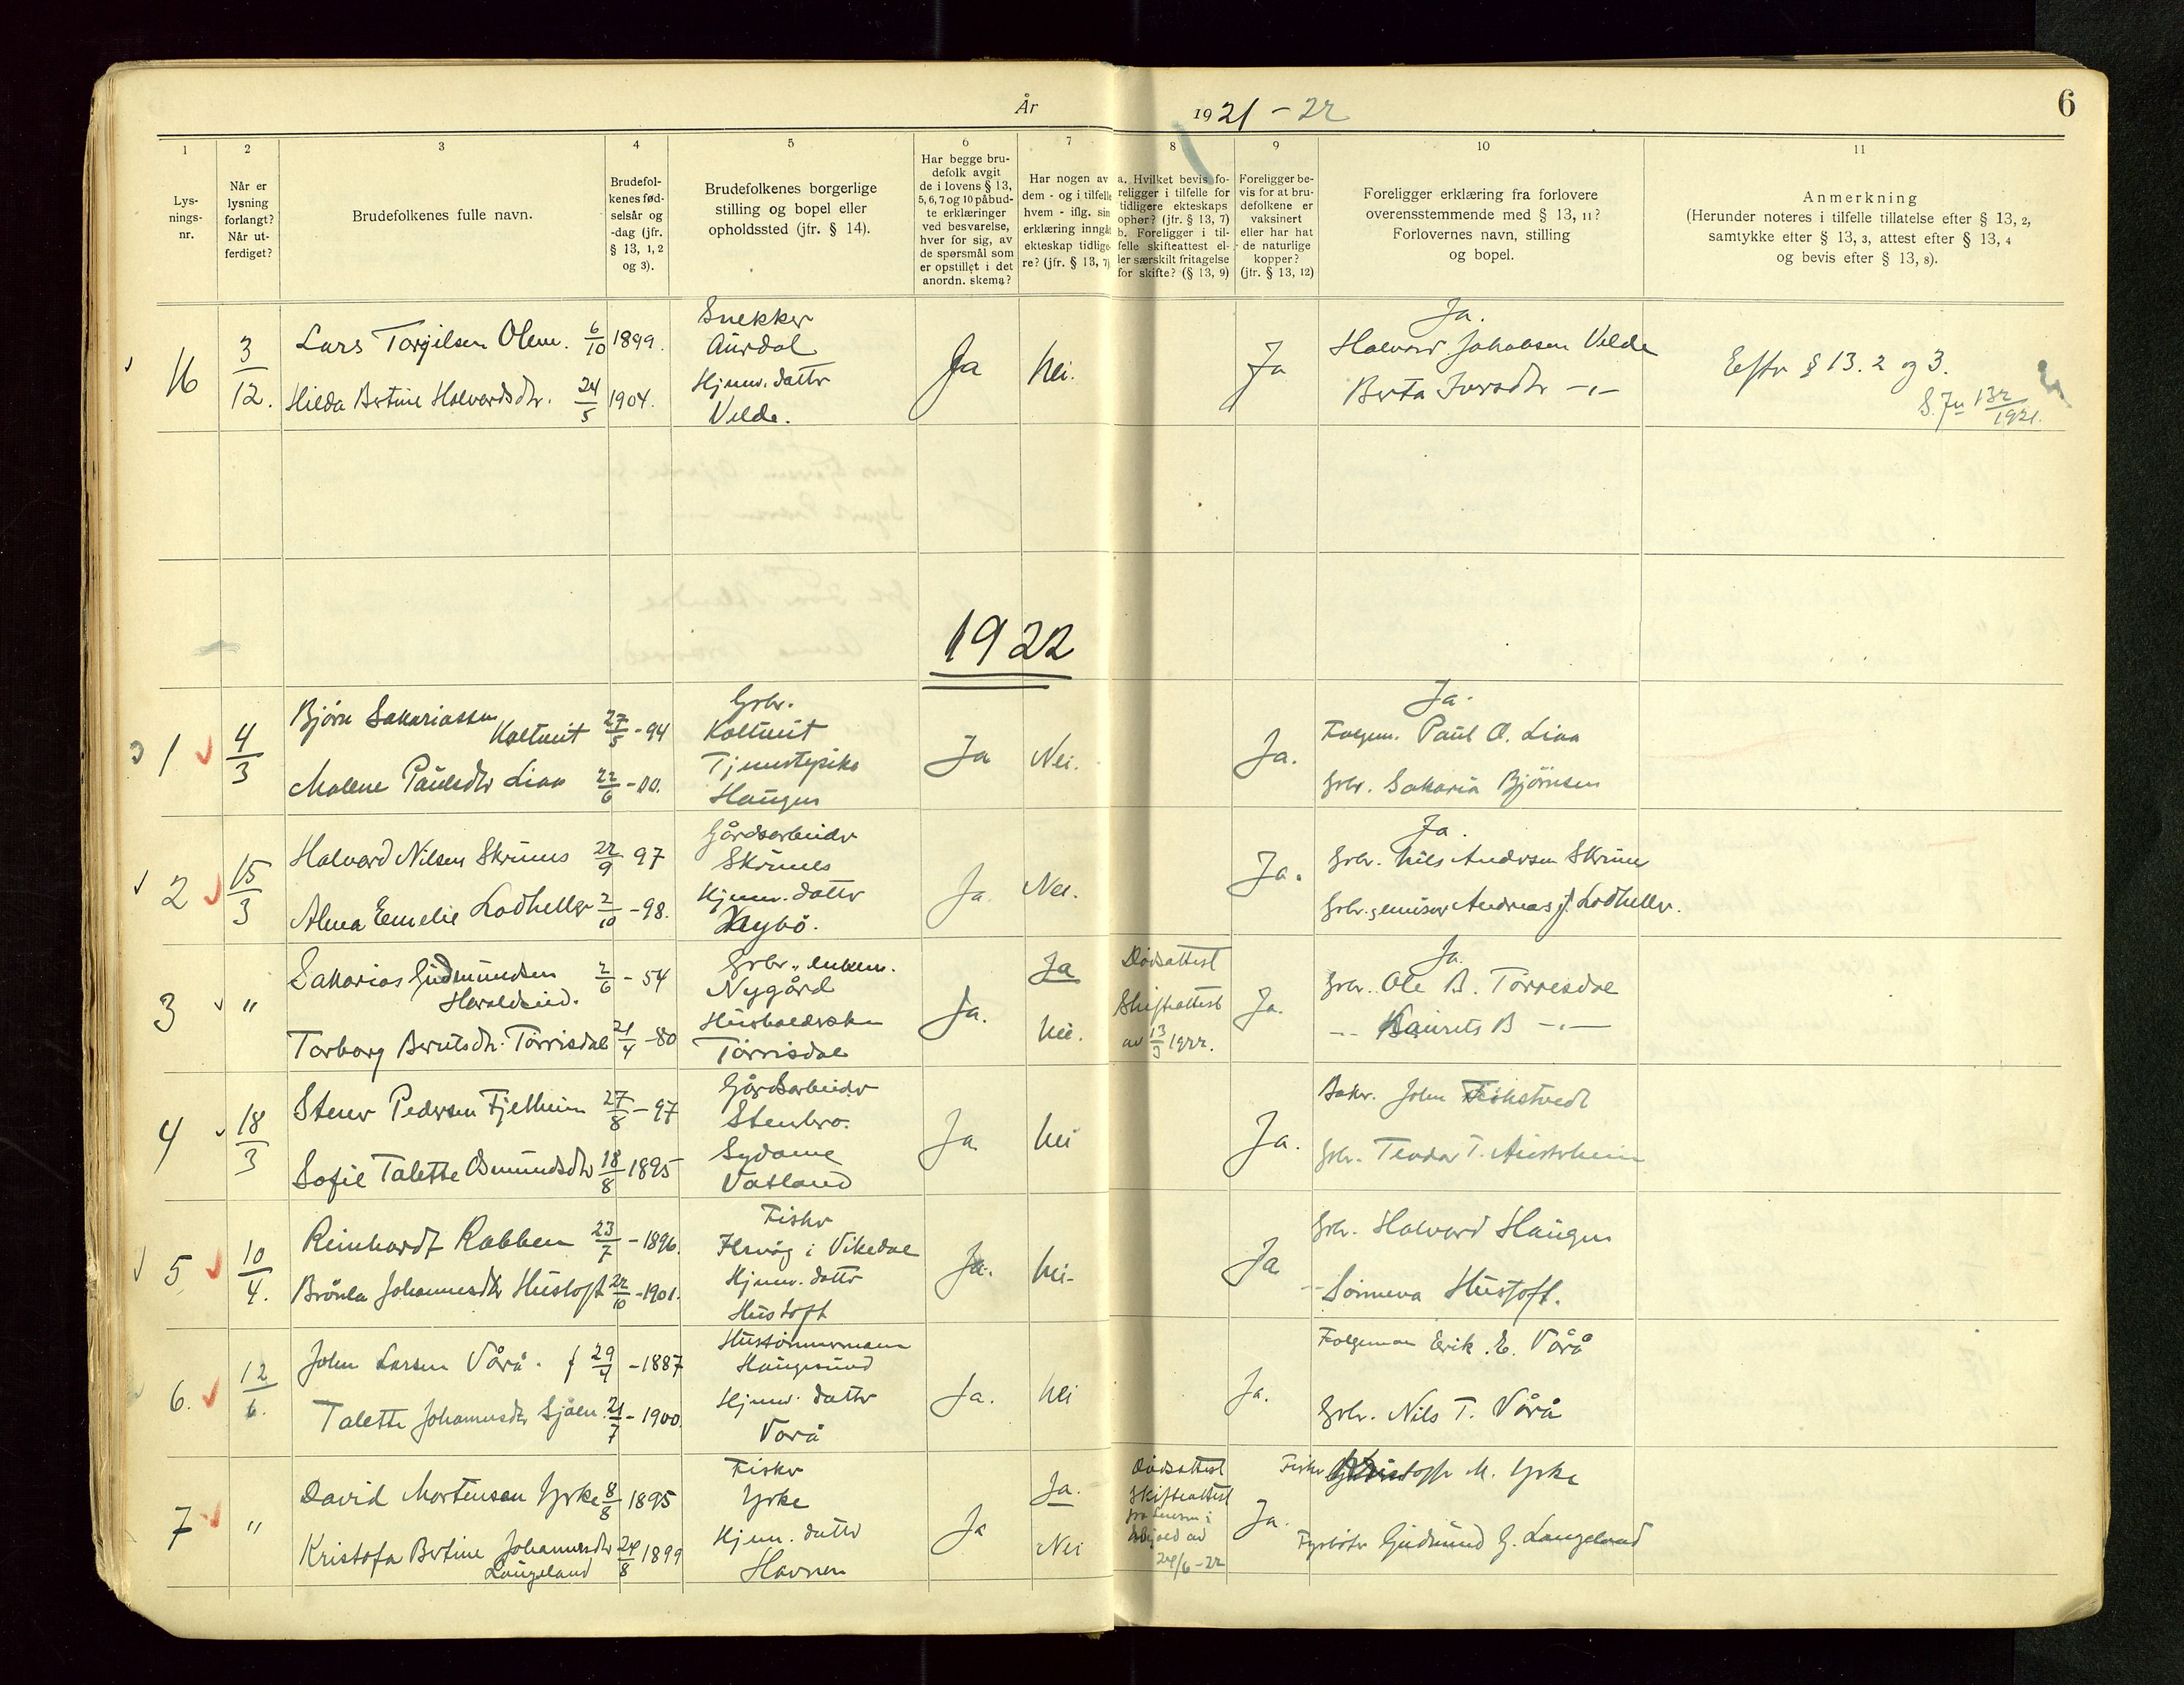 År 1921 - 22
6
1 2 3 4 5 6 7 8 9 10 11
Lys-
nings-
nr.
Når er
lysning
forlangt?
Når ut-
ferdiget?
Brudefolkenes fulle navn.
Brudefol-
kenes fød-
selsår og
-dag (jfr.
§ 13, 1, 2
og 3).
Brudefolkenes borgerlige
stilling og bopel eller
opholdssted (jfr. § 14).
Har begge bru-
defolk avgit
de i lovens § 13,
5, 6, 7 og 10 påbud-
te erklæringer
ved besvarelse,
hver for sig, av
de spørsmål som
er opstillet i det
anordn. skema?
Har nogen av
dem - og i tilfelle
hvem - iflg. sin
erklæring inngåt
ekteskap tidlige-
re? (jfr. § 13, 7)
a. Hvilket bevis fo-
religger i tilfelle for
tidligere ekteskaps
ophør? (jfr. § 13, 7)
b. Foreligger i til-
felle skifteattest el-
ler særskilt fritagelse
for skifte? (§ 13, 9)
Foreligger be-
vis for at bru-
defolkene er
vaksinert
eller har hat
de naturlige
kopper?
(jfr. § 13, 12)
Foreligger erklæring fra forlovere
overensstemmende med § 13, 11?
Forlovernes navn, stilling
og bopel.
Anmerkning
(Herunder noteres i tilfelle tillatelse efter § 13, 2,
samtykke efter § 13, 3, attest efter § 13, 4
og bevis efter § 13, 8).
16
3/12.
Lars Torgilsen Olem. 6/10 1899.
Hilda Bertine Halvardsdtr. 24/5 1904.
Snekker
Aurdal
Hjemv. datter
Velde.
Ja
Nei.
Ja
Ja.
Halvard Johansen Velde
Berta Iversdtr -"-
Eftr § 13. 2 og 3.
132/1921.
1922
1
4/3
Bjørn Sakariassen
Koltveit 27/5 - 94
Malene Paulsdtr Liaa 22/6 - 00.
Grbr.
Koltveit
Tjenestepike
Haugen
Ja
Nei.
Ja.
Ja.
Folgem. Paul O. Liaa
Grbr. Sakaria Bjørnsen
2
15/3
Halvard Nilsen Skrunes 22/9 97
Alma Emelie Lodheller 2/10 - 98.
Gårdsarbeider
Skrunes
Hjemv. datter
Nybö.
Ja.
Nei.
Ja.
Ja.
Grbr. Nils Andersen Skrune
Grbr. Andreas J. Lodheller.
3
"
Sakarias Gudmundsen
Haraldseid. 2/6 - 54
Torborg Berntsdtr. Törrisdal 21/4 - 80
Grbr. enkem.
Nygård
Husholderske
Törrisdal
Ja.
Ja
Nei.
Dödsattest
Skifteattest
av 13/3 1922.
Ja.
Ja.
Grbr. Ole B. Törresdal
-- Laurits B -"-
4
18/3
Stener Pedersen Fjellheim 27/8 - 97
Sofie Talette Osmundsdtr 18/8 1895
Gårdsarbeider
Stenbro.
Sydame
Vatland
Ja
Nei
Ja.
Baker. John
Grbr. Teodor T. Austerheim
5
10/4.
Reinhardt Rabben 23/7 - 1896.
Brönla Johannesdtr Hustoft 22/10 - 1901.
Fisker
i Vikedal
Hjemv. datter
Hustoft
Ja.
Nei.
Ja
Grbr. Halvard Haugen
-- Sönneva Hustoft.
6.
12/6.
John Larsen Vårå. f 29/4 - 1887
Talette Johannesdtr Sjöen. 21/7 - 1900
Hustömmermann
Haugesund
Hjemv. datter
Vårå
Ja.
Nei
Ja.
Folgeman Erik. E. Vårå
Grbr. Nils T. Vårå
7
"
David Mortensen Yrke 8/8 1895
Kristofa Bertine Johannesdtr
Langeland 24/8 1899
Fisker
Yrke
Hjem. datter
Havnen
Ja
Ja.
Nei
Dödsattest
Skifteattest
fra i
av
24/6 - 22
Ja.
Fisker Kristoffer M. Yrke
Fyrböter Gudmund G. Langeland